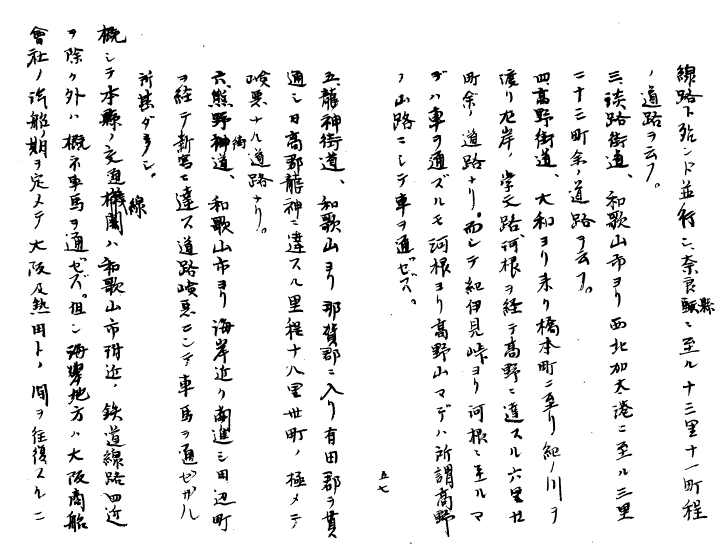 線路ト殆ンド並行シ、奈良縣ニ至ル十三里十一町程
ノ道路ヲ云フ。
三、淡路街道、和歌山市ヨリ西北加太港ニ至ル三里
二十三町余ノ道路ヲ云フ。
四高野街道、大和ヨリ来リ橋本町ニ至リ紀ノ川ヲ
渡リ左岸、学文路河根ヲ経テ高野ニ達スル六里廿
町余ノ道路ナリ。而シテ紀伊見峠ヨリ河根ニ至ルマ
デハ車ヲ通ズルモ河根ヨリ高野山マデハ所謂高野
ノ山路ニシテ車ヲ通ゼズ。
五七
五、龍神街道、和歌山ヨリ那賀郡ニ入リ有田郡ヲ貫
通シ日高郡龍神ニ達スル里程十八里丗町ノ極メテ
嶮悪ナル道路ナリ。
六、熊野街道、和歌山市ヨリ海岸近ク南進シ田辺町
ヲ経テ新宮ニ達ス道路嶮悪ニシテ車馬ヲ通ゼザル
所甚ダ多シ。
概シテ本縣ノ交通機関ハ和歌山市附近、鉄道線路四近
ヲ除ク外ハ概ネ車馬ヲ通ゼズ。但シ海岸地方ハ大阪商船
會社ノ汽船ノ期ヲ定メテ大阪及熱田トノ間ヲ往復スルニ